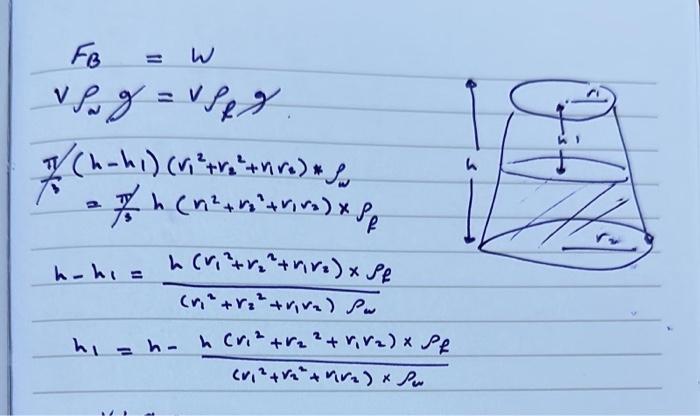 F_B = W
V ρ_w g = V ρ_f g.
π/3 (h-h₁) (r₁²+r₂²+r₁r₂) * ρ_w
= π/3 h (r₁²+r₂²+r₁r₂) × ρ_f
h-h₁ = h (r₁²+r₂²+r₁r₂) × ρ_f / (r₁²+r₂²+r₁r₂) ρ_w
h₁ = h- h (r₁²+r₂²+r₁r₂) × ρ_f / (r₁²+r₂²+r₁r₂) × ρ_w
r₁
h₁
h
r₂